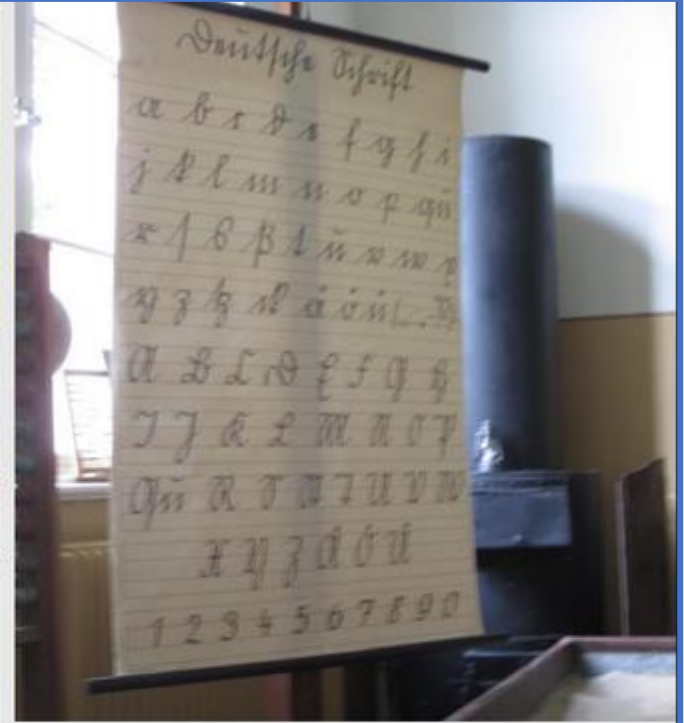 Deutsche Schrift
a b c d e f g h i
j k l m n o p qu
r ſ s ß t u v w x
y z tz ä ö ü
A B C D E F G H
I J K L M N O P
Qu R S St T U V W
X Y Z Ä Ö Ü
1 2 3 4 5 6 7 8 9 0